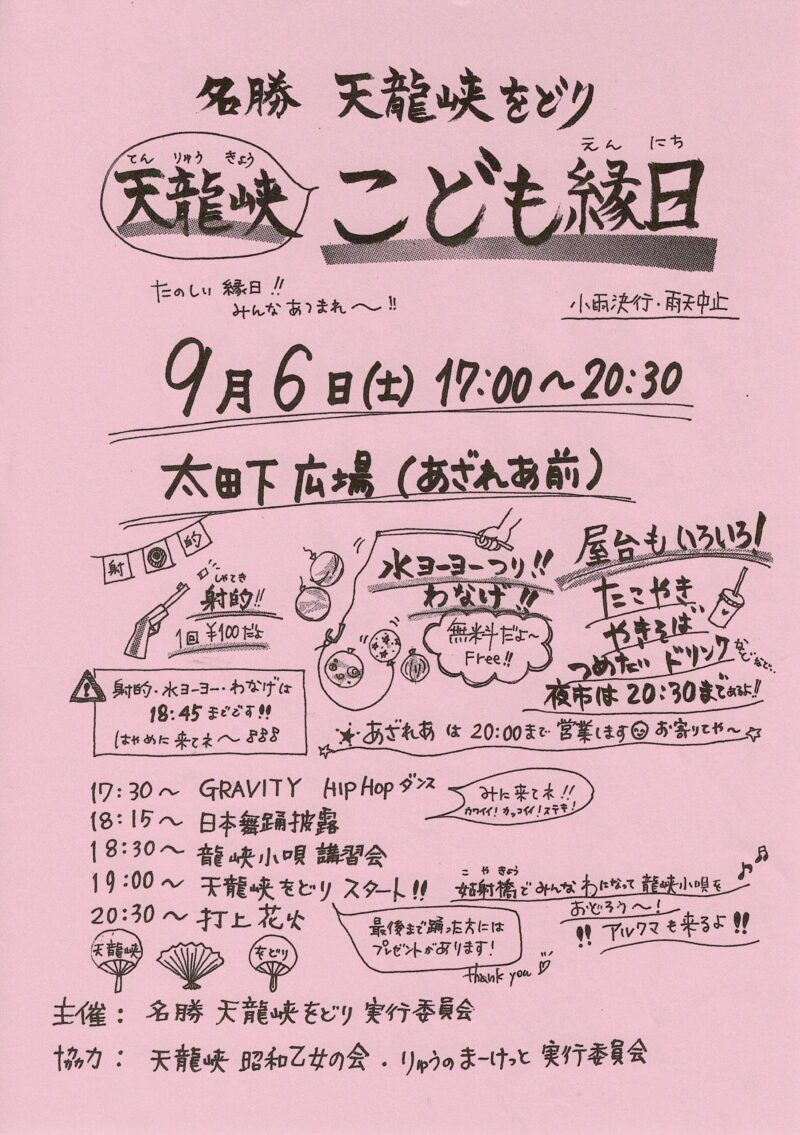 名勝 天龍峡をどり
てん りゅう きょう
天龍峡
えん にち
こども縁日
たのしい 縁日!!
みんなあつまれ〜!!
小雨決行・雨天中止
9月6日(土) 17:00〜20:30
太田下広場(あざれあ前)
射 的
しゃてき
射的!!
1回 ¥100だよ
水ヨーヨーつり!!
わなげ!!
無料だよ〜
Free!!
屋台もいろいろ!
たこやき
やきそば
つめたいドリンク などなど…
夜市は20:30まであるよ!!
射的・水ヨーヨー・わなげは
18:45までです!!
はやめに来てネ〜
あざれあ は 20:00まで 営業します お寄りてや〜
17:30〜 GRAVITY HIP HOP ダンス
みに来てネ!!
カワイイ!カッコイイ!ステキ!
18:15〜 日本舞踊披露
18:30〜 龍峡小唄 講習会
19:00〜 天龍峡をどり スタート!!
こ や きょう
姑射橋でみんなわになって龍峡小唄を
おどろう〜!
!! アルクマも来るよ!!
20:30〜 打上花火
最後まで踊った方には
プレゼントがあります!
thank you
天龍峡
をどり
主催: 名勝 天龍峡をどり 実行委員会
協力: 天龍峡 昭和乙女の会 . りゅうのまーけっと 実行委員会